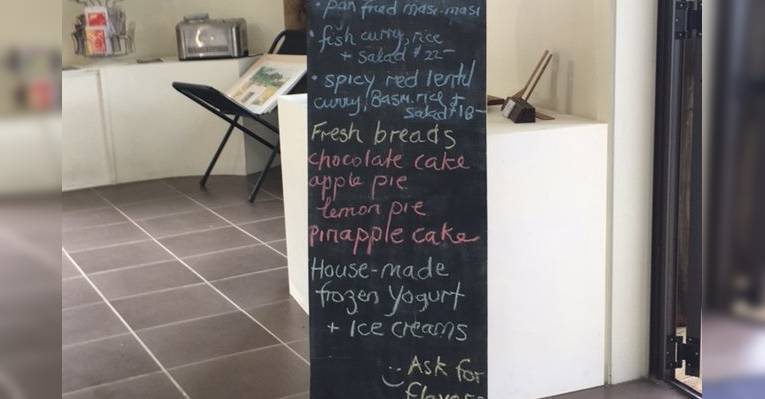 • pan fried masi-masi
• fish curry, rice
+ salad $22-
• spicy red lentil
curry, Basm. rice +
Salad $18-
Fresh breads
chocolate cake
apple pie
lemon pie
pinapple cake
House-made
frozen Yogurt
+ Ice creams
Ask for
flavors